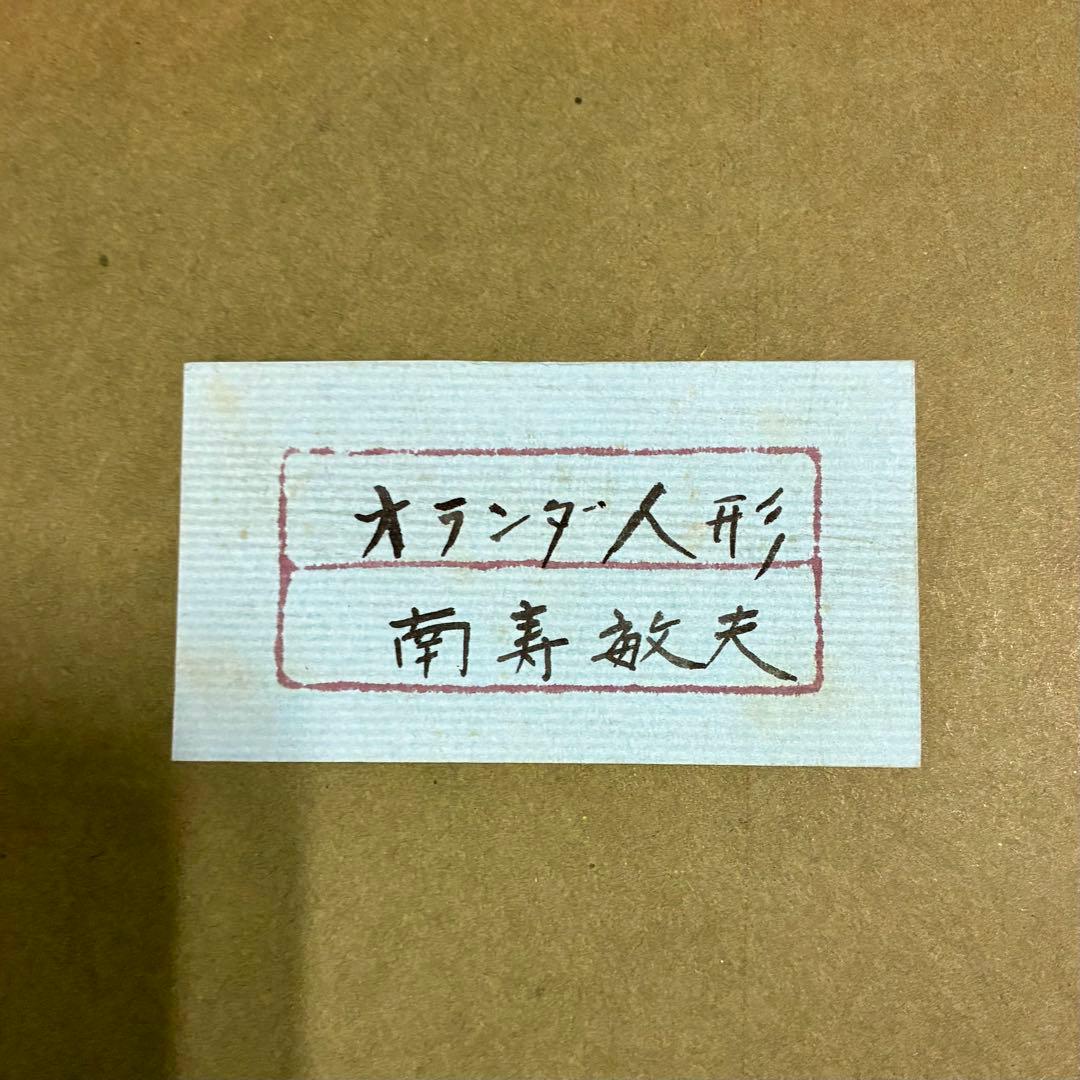 オランダ人形
南寿敏夫